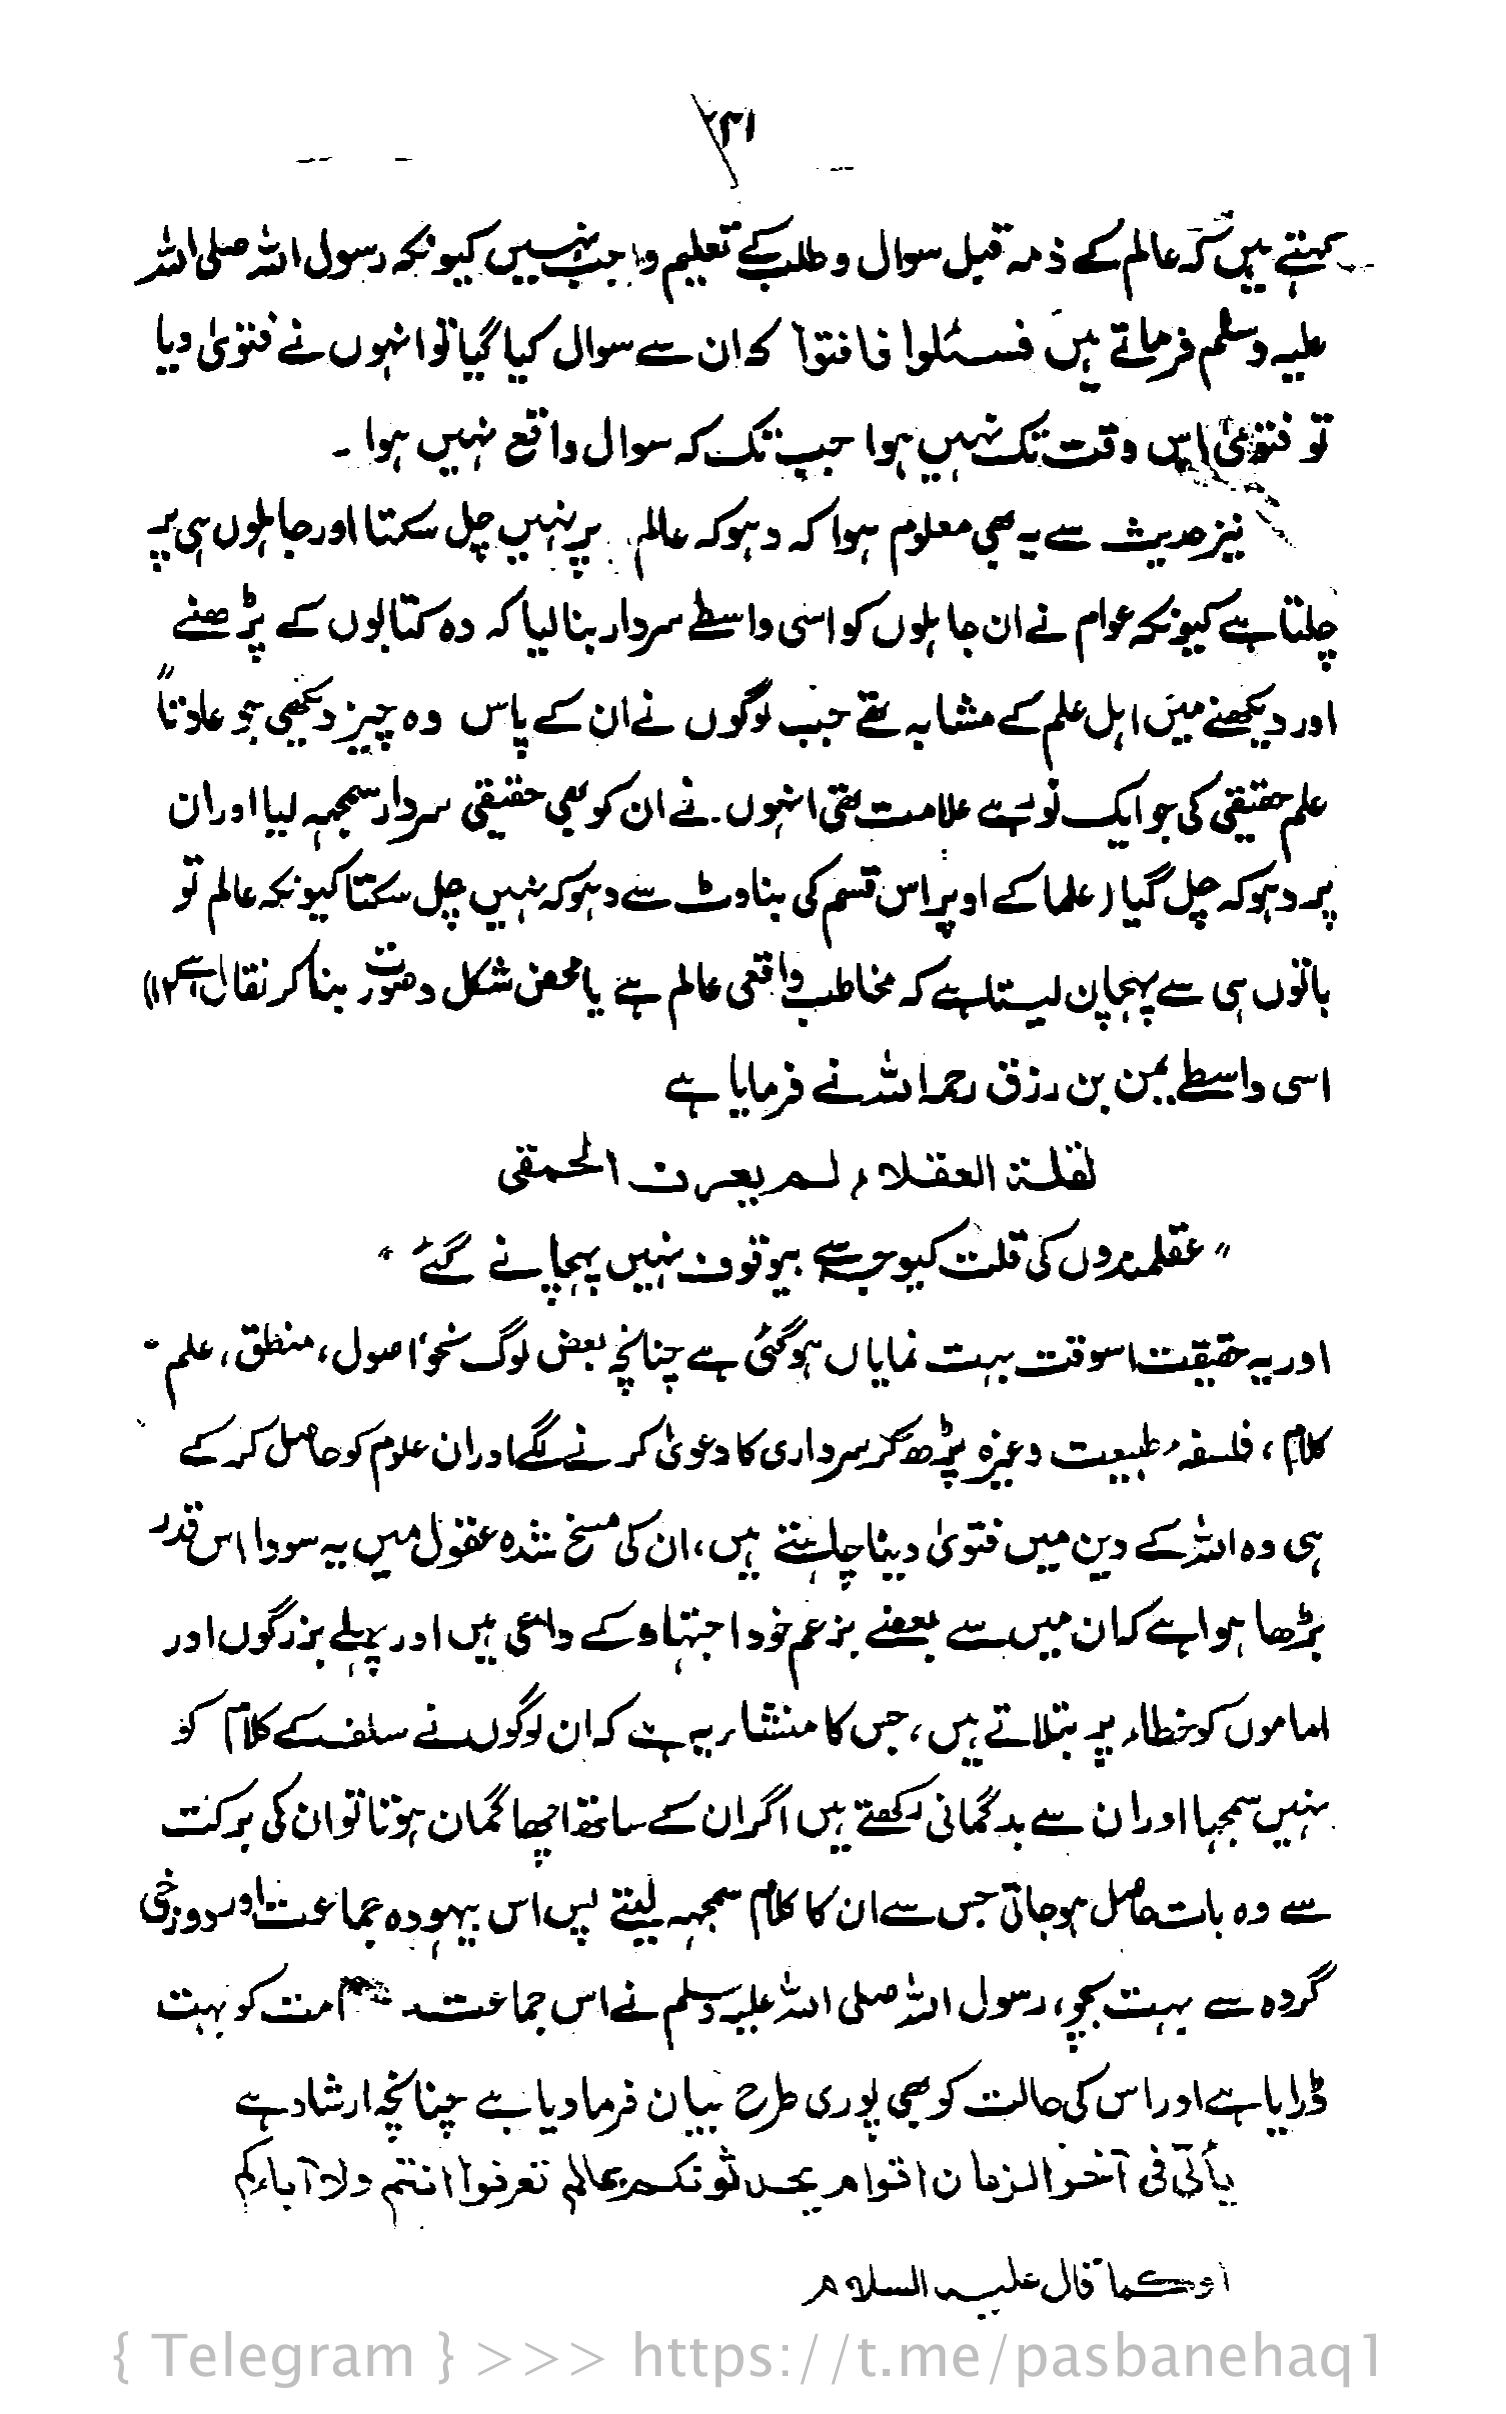 ۲۳۱
کہتے ہیں کہ عالم کے ذمہ قبل سوال وطلب کے تعلیم واجب نہیں کیونکہ رسول اللہ صلی اللہ
علیہ وسلم فرماتے ہیں فسئلوا فافتوا کہ ان سے سوال کیا گیا تو انہوں نے فتویٰ دیا
تو فتویٰ اس وقت تک نہیں ہوا جب تک کہ سوال واقع نہیں ہوا ۔
نیز حدیث سے یہ بھی معلوم ہوا کہ دہوکہ عالم پر نہیں چل سکتا اور جاہلوں ہی پر
چلتا ہے کیونکہ عوام نے ان جاہلوں کو اسی واسطے سردار بنا لیا کہ وہ کتابوں کے پڑھنے
اور دیکھنے میں اہل علم کے مشابہ تھے جب لوگوں نے ان کے پاس وہ چیز دیکھی جو عادتاً
علم حقیقی کی جو ایک نور ہے علامت تھی انہوں نے ان کو بھی حقیقی سردار سمجہہ لیا اور ان
پر دہوکہ چل گیا (علما کے اوپر اس قسم کی بناوٹ سے دہوکہ نہیں چل سکتا کیونکہ عالم تو
باتوں ہی سے پہچان لیتا ہے کہ مخاطب واقعی عالم ہے یا محض شکل وصورت بنا کر نقال ہے ۱۲)
اسی واسطے یمن بن رزق رحمہ اللہ نے فرمایا ہے
لقلة العقلاء لم يعرف الحمقى
"عقلمندوں کی قلت کیوجہ سے بیوقوف نہیں پہچانے گئے"
اور یہ حقیقت اسوقت بہت نمایاں ہوگئی ہے چنانچہ بعض لوگ نحو، اصول، منطق، علم
کلام، فلسفہ، طبیعت وغیرہ پڑھ کر سرداری کا دعویٰ کرنے لگے اور ان علوم کو حاصل کر کے
ہی وہ اللہ کے دین میں فتویٰ دینا چاہتے ہیں، ان کی مسخ شدہ عقول میں یہ سودا اس قدر
بڑھا ہوا ہے کہ ان میں سے بعضے بزعم خود اجتہاد کے داعی ہیں اور پہلے بزرگوں اور
اماموں کو خطاء پر بتلاتے ہیں، جس کا منشاء یہ ہے کہ ان لوگوں نے سلف کے کلام کو
نہیں سمجہا اور ان سے بدگمانی رکھتے ہیں اگر ان کے ساتھ اچھا گمان ہوتا تو ان کی برکت
سے وہ بات حاصل ہو جاتی جس سے ان کا کلام سمجہہ لیتے پس اس بیہودہ جماعت اور دوزخی
گروہ سے بہت بچو، رسول اللہ صلی اللہ علیہ وسلم نے اس جماعت سے امت کو بہت
ڈرایا ہے اور اس کی حالت کو بھی پوری طرح بیان فرما دیا ہے چنانچہ ارشاد ہے
يأتي في آخر الزمان اقوام يحدثونكم بمالم تعرفوا انتم ولا آباءكم
اوكما قال عليه السلام
{ Telegram } >>> https://t.me/pasbanehaq1